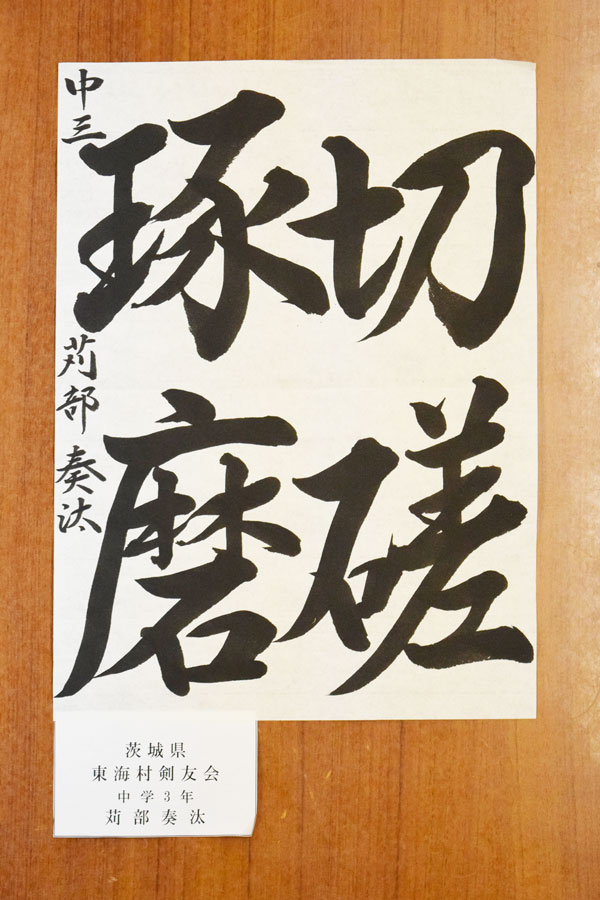 切磋
琢磨
中三 苅部奏汰
茨城県
東海村剣友会
中学3年
苅部奏汰